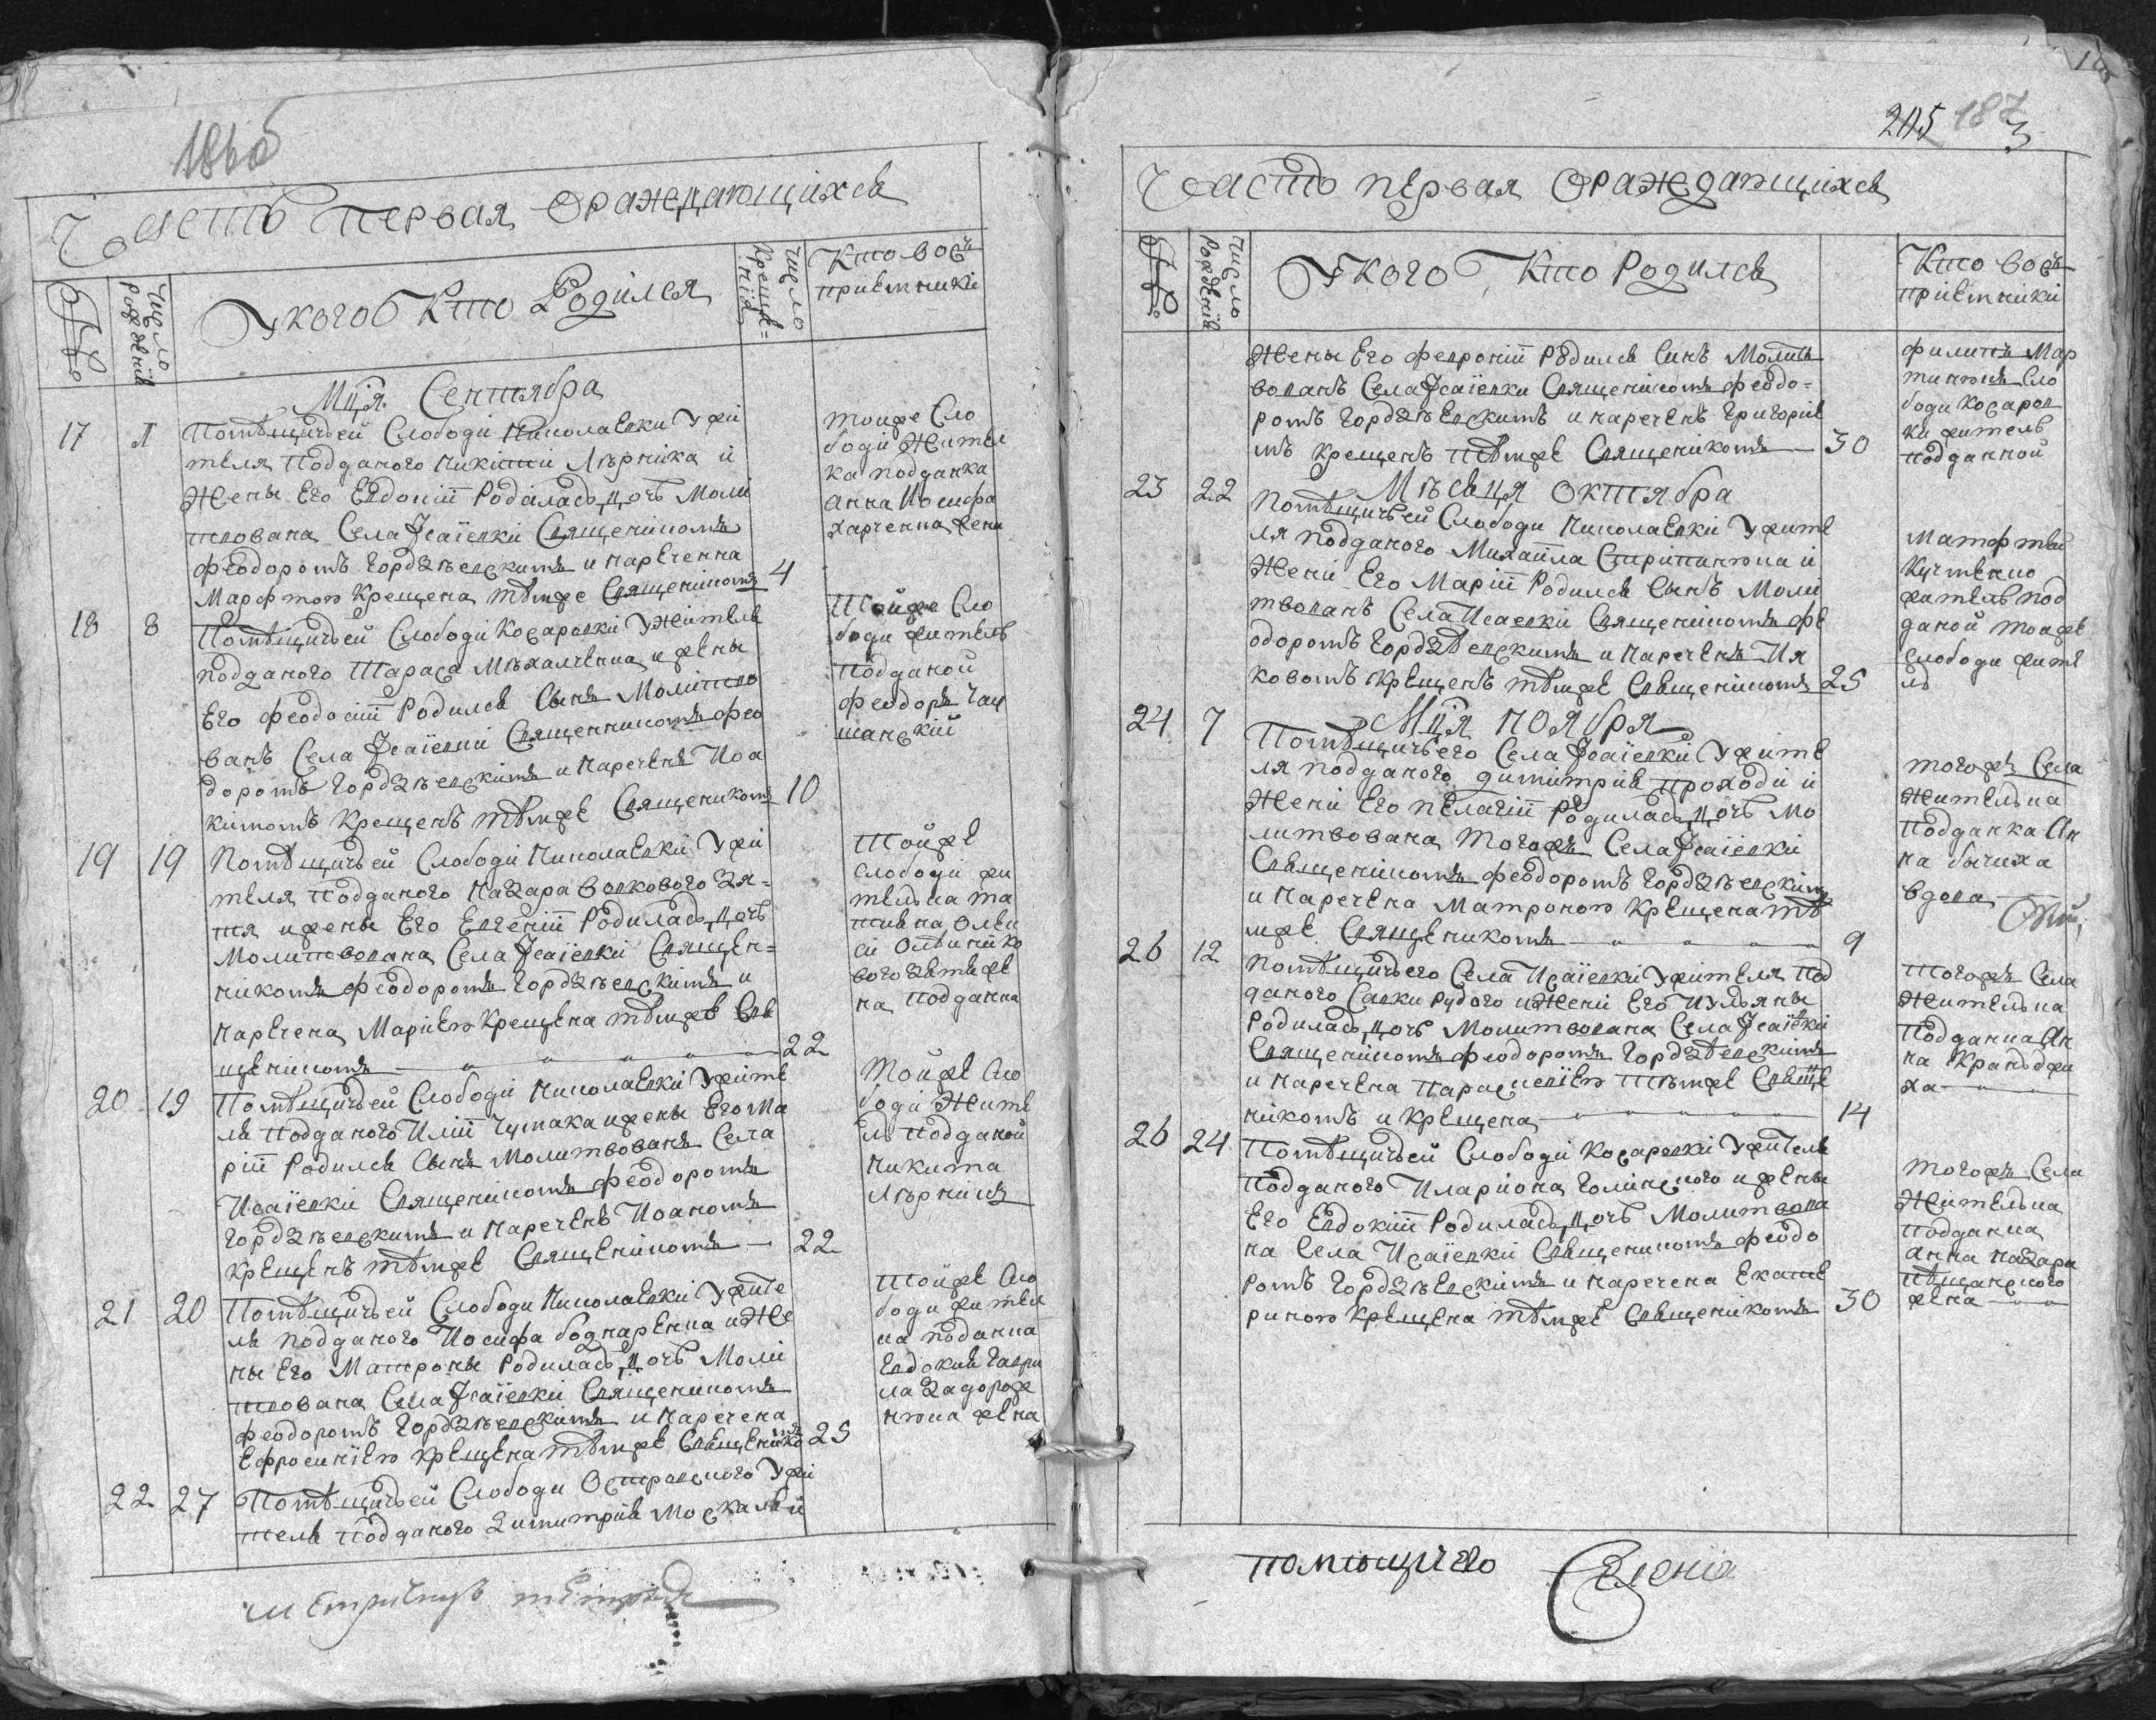 186об
Часть первая ораждающихся
№
Число рожденія
У кого Кто Родился
Число Крещенія
Кто Восъ
пріемники
Мца Сентября
17
Помѣщичьей Слободи Николаевки Ужи
теля Подданого Никити Лѣрника и
Жены Его Евдокіи Родилась дочь Моли
твована Села Ісаіевки Священикомъ
Феодоромъ Гордзѣевскимъ и нареченна
Марфтою Крещена тѣмже Священикомъ 4
тоиже Сло
боди Жител
ка подданка
Анна Иосифа
Харченка жена
18 8
Помѣщичьей Слободи Косаровки Ужителя
подданого Тараса Мѣхалченка и жены
Его Феодосіи Родился Сынъ Молитво
ванъ Села Ісаіевки Священникомъ Фео
доромъ Гордзѣевскимъ и нареченъ Иоа
кимомъ Крещенъ тѣмже Священикомъ 10
Тойже Сло
боди житель
Подданой
Феодоръ
19 19
Помѣщичьей Слободи Николаевки Ужи
теля Подданого Назара Волкового Зя=
тя и жены Его Евгеніи Родилась дочь
Молитвована Села Ісаіевки Священ=
никомъ Феодоромъ Гордзѣевскимъ и
наречена Маріею Крещена тѣмже Свя
щеникомъ 22
Тойже
Слободи жи
телка
на Подданка
20 19
Помѣщичьей Слободи Николаевки Ужите
ля Подданого Иліи Чумака и жены Его Ма
ріи Родился Сынъ Молитвованъ Села
Исаіевки Священикомъ Феодоромъ
Гордзѣевскимъ и нареченъ Иоаномъ
Крещенъ тѣмже Священикомъ 22
Тойже Сло
боди Жите
ль Подданой
Никита
Лѣрникъ
21 20
Помѣщичьей Слободи Николаевки Ужите
ля подданого Иосифа Боднаренка и Же
ны Его Матроны Родилась дочь Моли
твована Села Ісаіевки Священикомъ
Феодоромъ Гордзѣевскимъ и наречена
Ефросиніею Крещена тѣмже Священикомъ 25
Тойже Сло
боди жител
ка поданка
Евдокия Гаври
ла Задорож
нюка жена
22 27
Помѣщичьей Слободи Остравского Ужи
теля Подданого Димитрія Москаля и
205 187
Часть первая ораждающихся
№
Число Рожденія
У кого Кто Родился
Кто Восъ
пріемники
Жены Его Февроніи Родился Синъ Молит
вованъ Села Ісаіевки Священикомъ Феодо=
ромъ Гордзѣевскимъ и нареченъ Григоріе
мъ Крещенъ тѣмже Священикомъ 30
Филипъ Мар
тинюкъ Сло
боди Косаров
ки житель
подданной
Мѣсяця Октября
23 22
Помѣщичьей Слободи Николаевки Ужите
ля подданого Михаила Стрипанюка и
Жени Его Маріи Родился Сынъ Моли
твованъ Села Исаевки Священикомъ Фе
одоромъ Гордзѣевскимъ и нареченъ Ия
ковомъ Крещенъ тѣмже Священикомъ 25
Матфтей
житель под
даной тоиже
Слободи жите
ль
Мця ноября
24 7
Помѣщичьего Села Ісаіевки Ужите
ля подданого Димитрія Проходи и
Жени Его Пелагіи Родилась дочь Мо
литвована тогожъ Села Ісаіевки
Священикомъ Феодоромъ Гордзѣевскимъ
и наречена Матроною Крещена тѣ
мже Священикомъ 9
тогожъ Села
Жителька
Подданка Ан
на Бычиха
вдова
26 12
Помѣщичьего Села Исаіевки Ужителя Под
даного Савки Рудого и Жени Его Иульяны
Родилась дочь Молитвована Села Ісаіевки
Священикомъ Феодоромъ Гордзѣевскимъ
и наречена Параскевіею тѣмже Священ
никомъ и Крещена 14
Тогожъ Села
Жителька
Подданка Ан
на
26 24
Помѣщичьей Слободи Косаровки Ужителя
Подданого Илариона Голинского и жены
Его Евдокіи Родилась дочь Молитвова
на Села Исаіевки Священикомъ Феодо
ромъ Гордзѣевскимъ и наречена Екате
риною Крещена тѣмже Священикомъ 30
тогожъ Села
Жителька
Подданка
Анна Назара
жена
помѣщичего Селенія